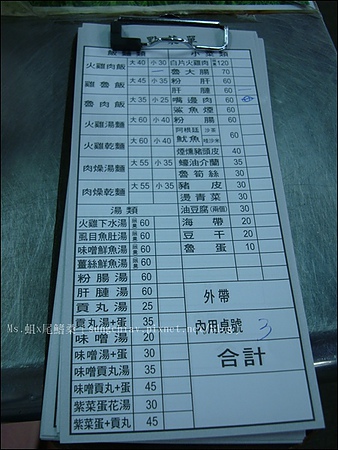 點菜單
飯麵類 小菜類
火雞肉飯 大40 小30 白片火雞肉 120
魯大腸 70
雞魯飯 大35 小25 粉肝 60
肝腱 60
魯肉飯 大35 小25 嘴邊肉 60
鯊魚煙 60
火雞湯麵 大60 小40 粉腸 60
火雞乾麵 大60 小40 阿根廷魷魚 60
煙燻豬頭皮 40
肉燥湯麵 大55 小35 蠔油介蘭 35
魯筍絲 30
肉燥乾麵 大55 小35 豬皮 30
燙青菜 30
湯類 油豆腐(兩個) 30
火雞下水湯 60 海帶 20
虱目魚肚湯 60 豆干 20
味噌鮮魚湯 60 魯蛋 10
薑絲鮮魚湯 60
粉腸湯 60
肝腱湯 60 外帶
貢丸湯 25
貢丸湯+蛋 35 內用桌號 3
味噌湯 20
味噌湯+蛋 30 合計
味噌貢丸湯 35
味噌貢丸+蛋 45
紫菜蛋花湯 30
紫菜蛋+貢丸 45